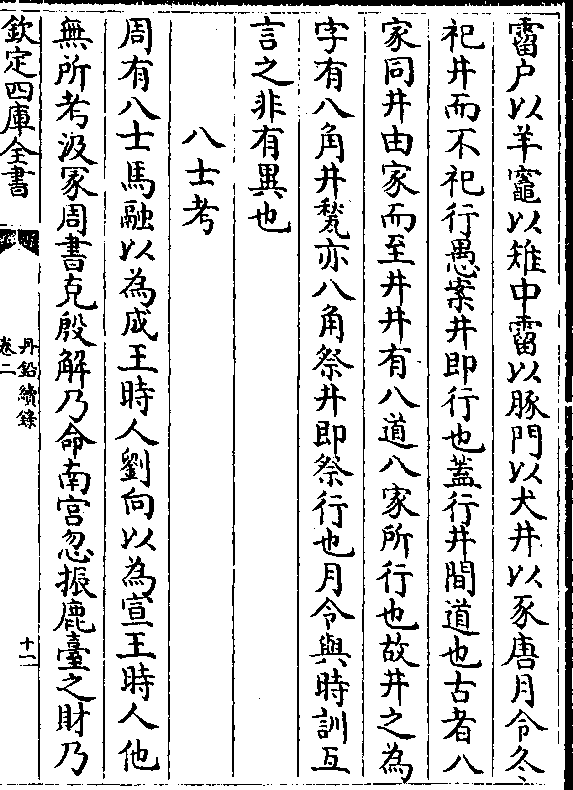 霤户以羊竈以雉中霤以豚門以犬井以豕唐月令冬
祀井而不祀行愚案井即行也蓋行井間道也古者八
家同井由家而至井井有八道八家所行也故井之為
字有八角井甃亦八角祭井即祭行也月令與時訓互
言之非有異也
八士考
周有八士馬融以為成王時人劉向以為宣王時人他
無所考汲冢周書克殷解乃命南宫忽振鹿臺之財乃
欽定四庫全書
丹鉛續錄
卷二
十二